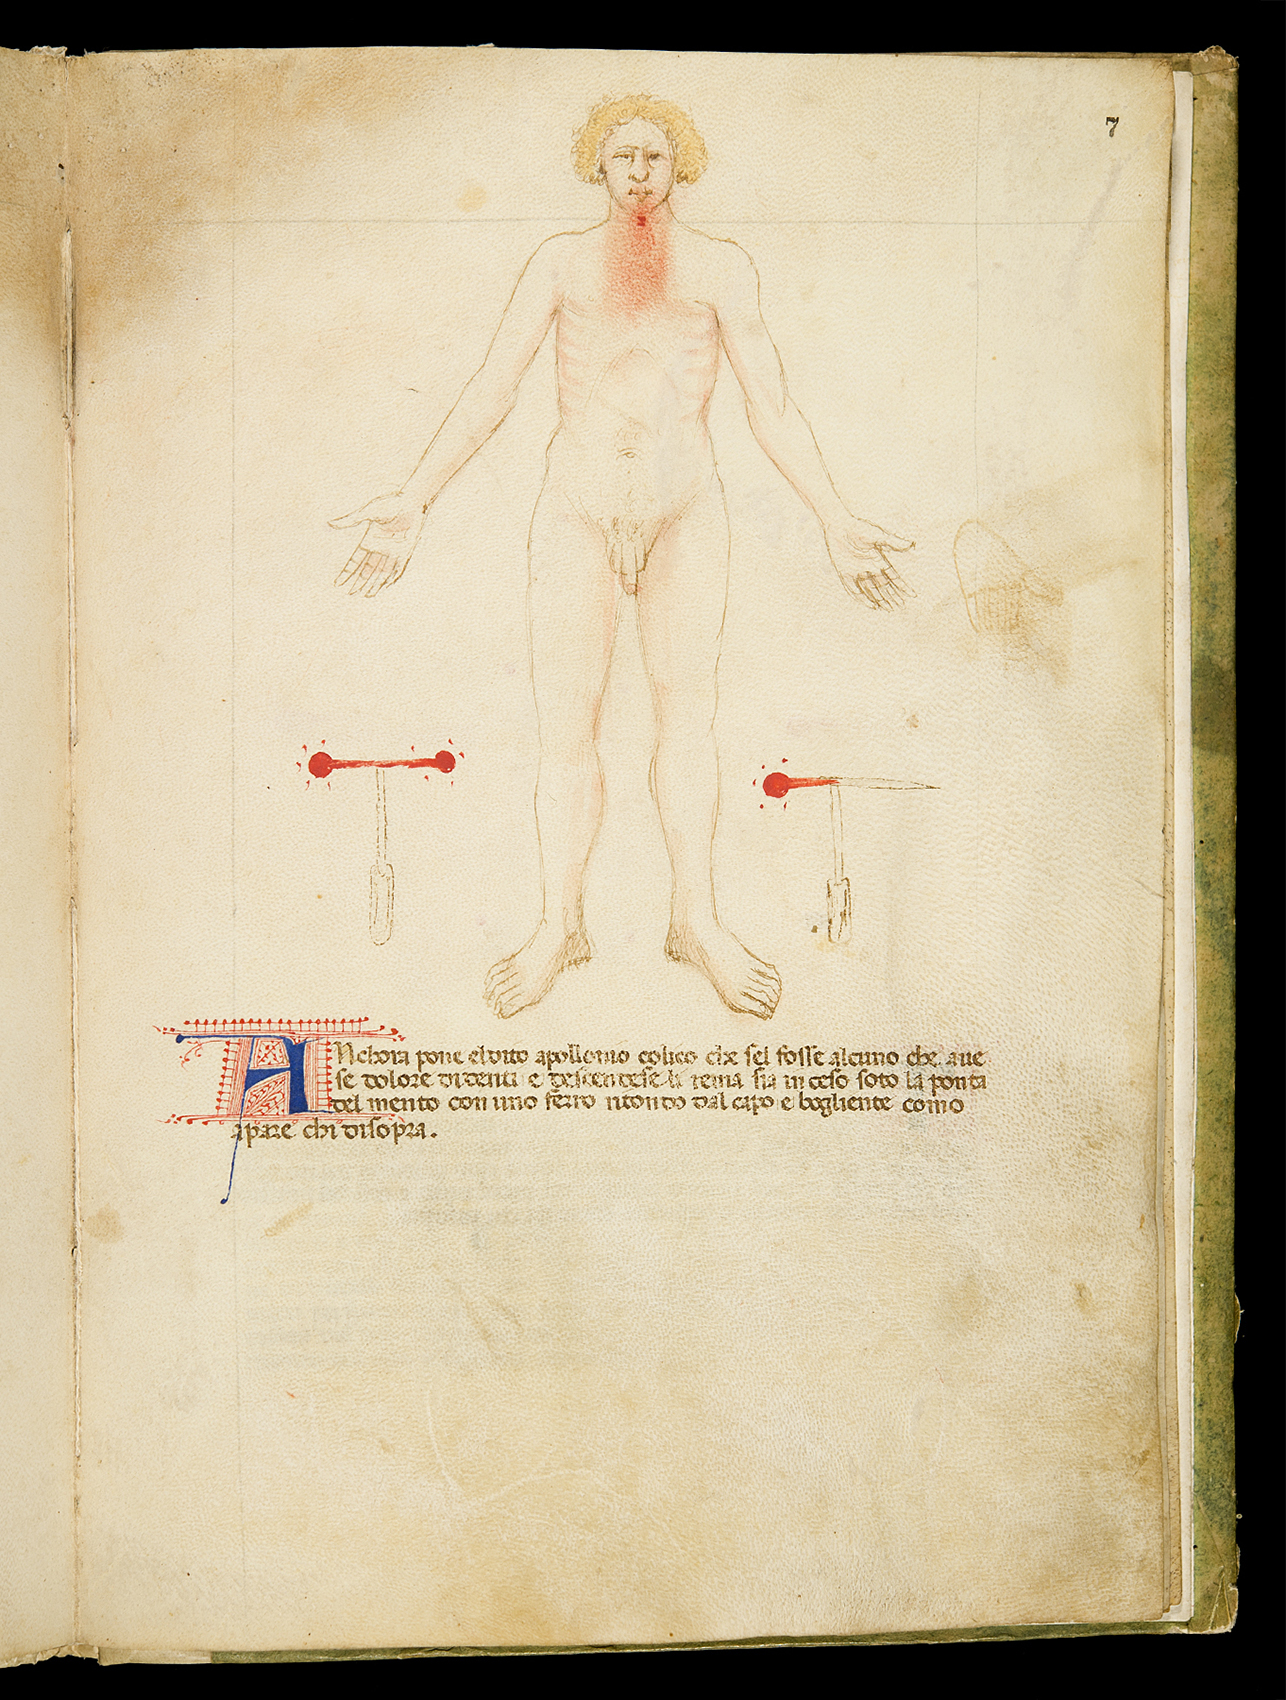 7
ANchora pone el dito apollonio colico che sel fosse alcuno che aue
se dolore di denti e descendese li rema sia inceso soto la ponta
del mento con uno ferro ritondo dal capo e bogliente como
apare chi disopra.